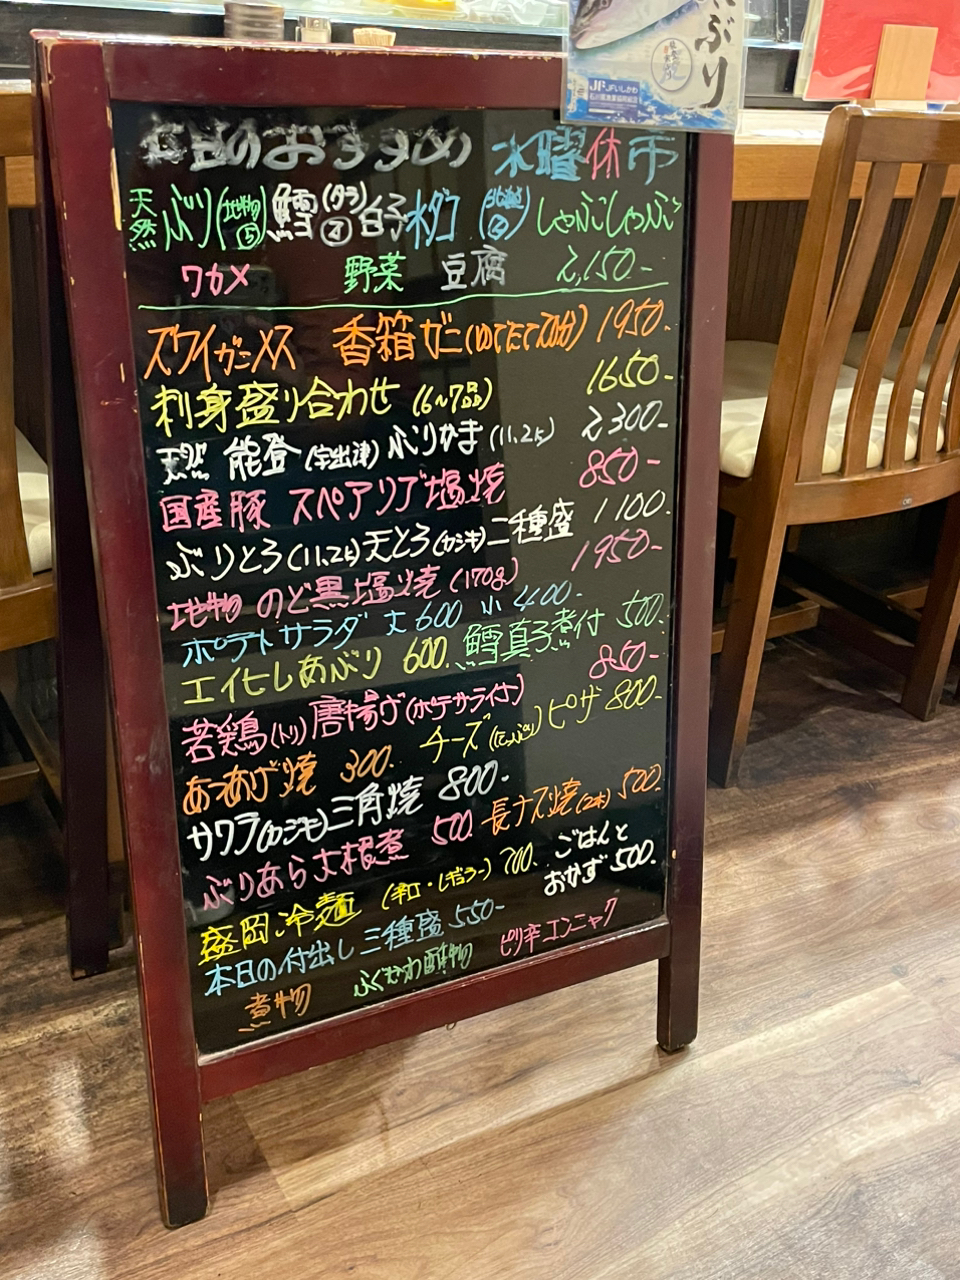 ぶり
JF JFいしかわ
石川県漁業協同組合
本日のおすすめ 水曜休市
天然ぶり(地物⑤) 鱈(タラ)白子 水ダコ しゃぶしゃぶ
ワカメ 野菜 豆腐 2,150-
ズワイガニメス 香箱ガニ(ゆでたて200分) 1950-
刺身盛り合わせ (6〜7品) 1650-
天然 能登(宇出津)ぶりかま(11.2k) 2300-
国産豚 スペアリブ塩焼 850-
ぶりとろ(11.2k)天とろ(カジキ)二種盛 1100-
地物 のど黒塩焼(170g) 1950-
ポテトサラダ 大600 小400-
エイヒレあぶり 600. 鱈真子煮付 500.
若鶏(トリ)唐揚げ(ポテサラ付) 850-
あつあげ焼 300. チーズ(たっぷり)ピザ 800-
サワラ(カジキ)三角焼 800-
ぶりあら大根煮 500. 長ナス焼(2本) 500.
盛岡冷麺 700. ごはんと
おかず 500.
本日の付出し三種盛 550-
煮物 ふくさわ酢物 ピリ辛コンニャク